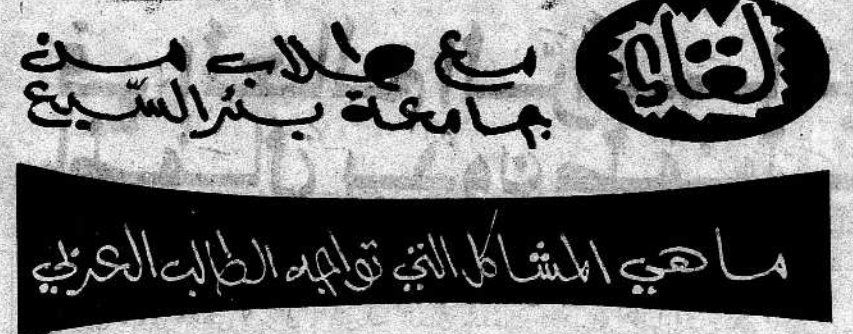 لقاء
مع طلاب من
جامعة بئر السّبع
ما هي المشاكل التي تواجه الطالب العربي